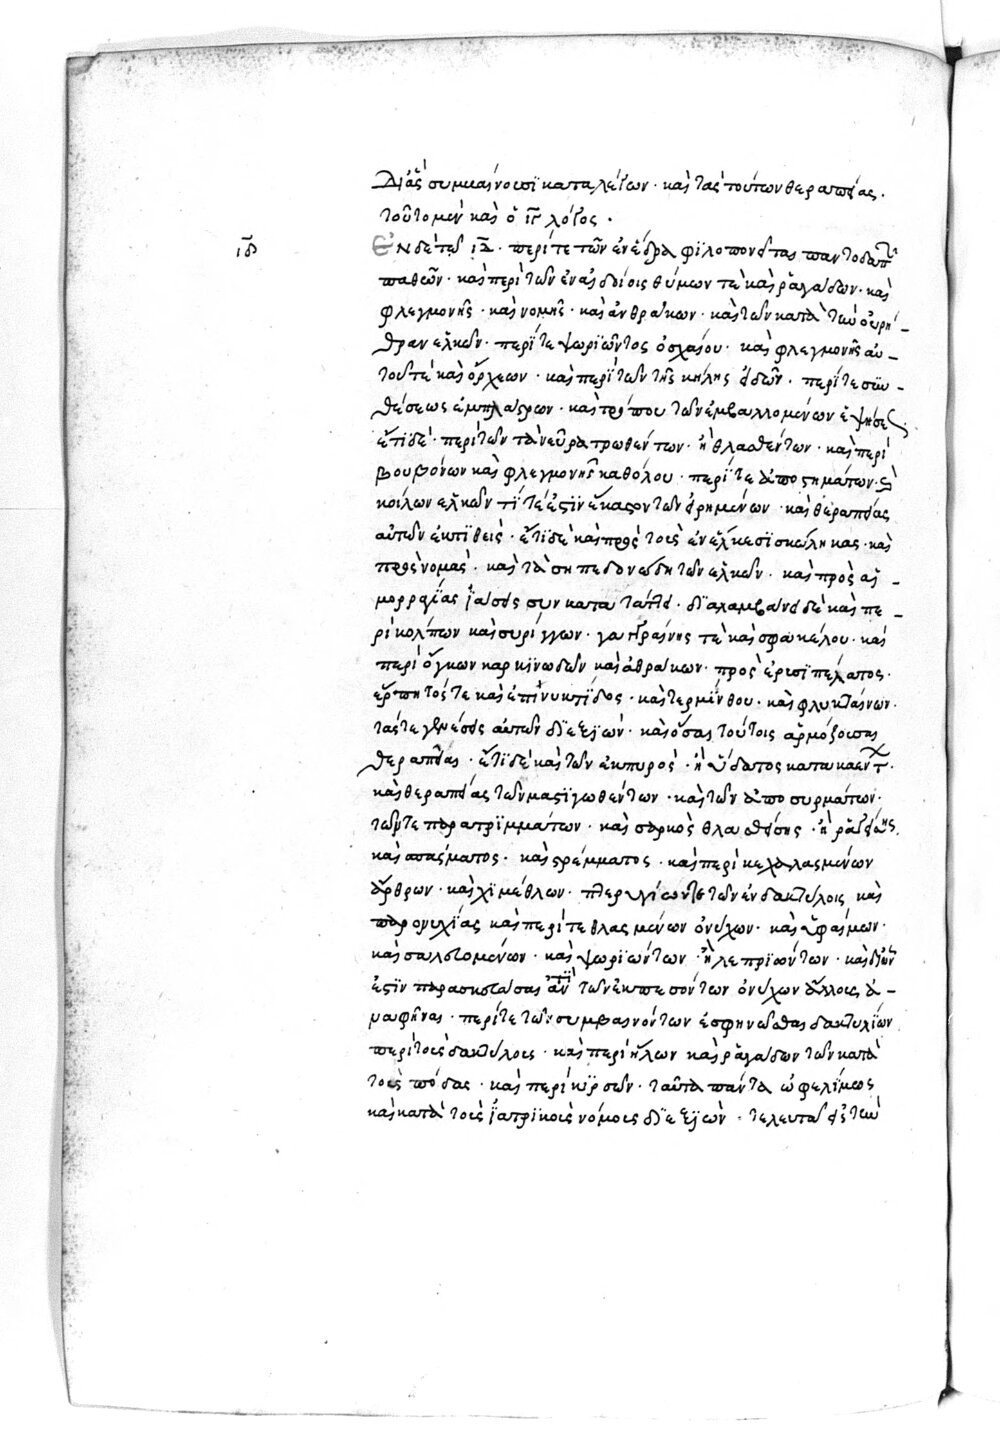 δι' ἃς συμβαίνουσι καταλέγων· καὶ τὰς τούτων θεραπείας.
τοῦτο μὲν καὶ ὁ ιγ λόγος.
ιδ
Ἐν δέ τῷ ιδ· περί τε τῶν ἐν ἕδρᾳ φιλοπονεῖται παντοδαπῶν
παθῶν· καὶ περὶ τῶν ἐν αἰδοίοις θύμων τὲ καὶ ῥαγάδων· καὶ
φλεγμονῆς· καὶ νομῆς· καὶ ἀνθράκων· καὶ τῶν κατὰ τὴν οὐρή-
θραν ἑλκῶν· περί τε ψωριῶντος ὀσχαίου· καὶ φλεγμονῆς αὐ-
τοῦ τὲ καὶ ὄρχεων· καὶ περὶ τῶν τῆς κήλης εἰδῶν· περί τε συν-
θέσεως ἐμπλάστρων· καὶ τρόπου τῶν ἐμβαλλομένων ἑψήσεως·
ἔτι δὲ· περὶ τῶν τὰ νεῦρα τρωθέντων· ἢ θλασθέντων· καὶ περὶ
βουβόνων καὶ φλεγμονῆς καθόλου· περί τε ἀποστημάτων· καὶ
κοίλων ἑλκῶν τί τέ ἐστιν ἕκαστον τῶν εἰρημένων· καὶ θεραπείας
αὐτῶν ἐκτίθεις· ἔτι δὲ καὶ πρὸς τοὺς ἐν ἕλκεσι σκώληκας· καὶ
πρὸς νομὰς· καὶ τὰ σηπεδονώδη τῶν ἑλκῶν· καὶ πρὸς αἱ-
μορραγίας ἰάσεις συγκαταπάττει· διαλαμβάνει δὲ καὶ πε-
ρὶ κόλπων καὶ συρίγγων· γαγγραίνης τὲ καὶ σφακέλου· καὶ
περὶ ὄγκων καρκινωδῶν καὶ ἀθράκων· πρὸς ἐρυσιπέλατος·
ἕρπητός τε καὶ ἐπινυκτίδος· καὶ τερμίνθου· καὶ φλυκταίνων·
τάς τε γενέσεις αὐτῶν διεξιών· καὶ ὅσας τούτοις ἁρμόζουσας
θεραπείας· ἔτι δὲ καὶ τῶν ἐκ πυρὸς· ἢ ὕδατος κατακαέντων·
καὶ θεραπείας τῶν μαστιγωθέντων· καὶ τῶν ἀποσυρμάτων·
τῶν τε παρατριμμάτων· καὶ σαρκὸς θλασθείσης· ἢ ῥαγείσης·
καὶ σπάσματος· καὶ στρέμματος· καὶ περὶ κεχαλασμένων
ἄρθρων· καὶ χιμέθλων· πτερυγίων τε τῶν ἐν δακτύλοις καὶ
παρονυχίας καὶ περί τε θλασμένων ὀνύχων· καὶ ὑφαίμων·
καὶ σαλευομένων· καὶ ψωριώντων· ἢ λεπριώντων· καὶ δι' ὧν
ἐστιν παρασκευάσαι ἀντὶ τῶν ἐκπεσόντων ὀνύχων ἄλλους ἀ-
ναφῆναι· περί τε τῶν συμβαινόντων ἐσφηνῶσθαι δακτυλίων
περὶ τοὺς δακτύλους· καὶ περὶ ἥλων καὶ ῥαγάδων τῶν κατὰ
τοὺς πόδας· καὶ περὶ κιρσῶν· ταῦτα πάντα ὠφελίμως
καὶ κατὰ τοὺς ἰατρικοὺς νόμους διεξιὼν· τελευτᾷ εἰς τὴν